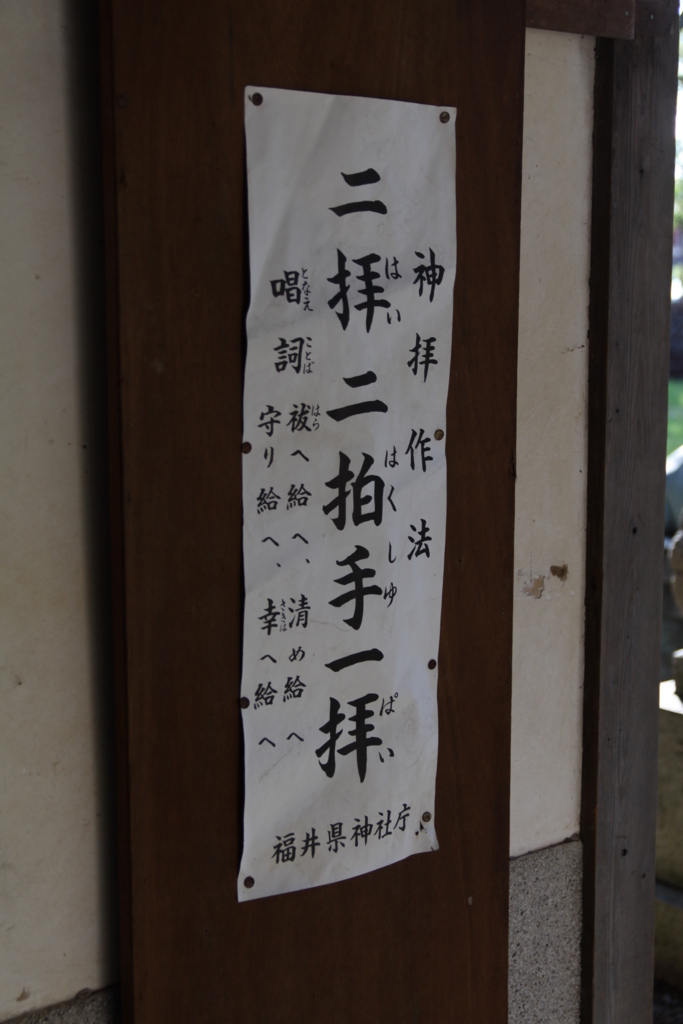 神拝作法
二拝二拍手一拝
はい はくしゅ ぱい
唱詞
となえ ことば
祓へ給へ、清め給へ
はら
守り給へ、幸へ給へ
さきは
福井県神社庁